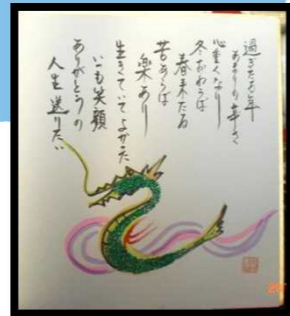 過ぎた五年
あまりにも辛く
心重くなり
冬おわらば
春来たる
苦あらば
楽あり
生きていてよかった
いつも笑顔
ありがとうの
人生送りたい